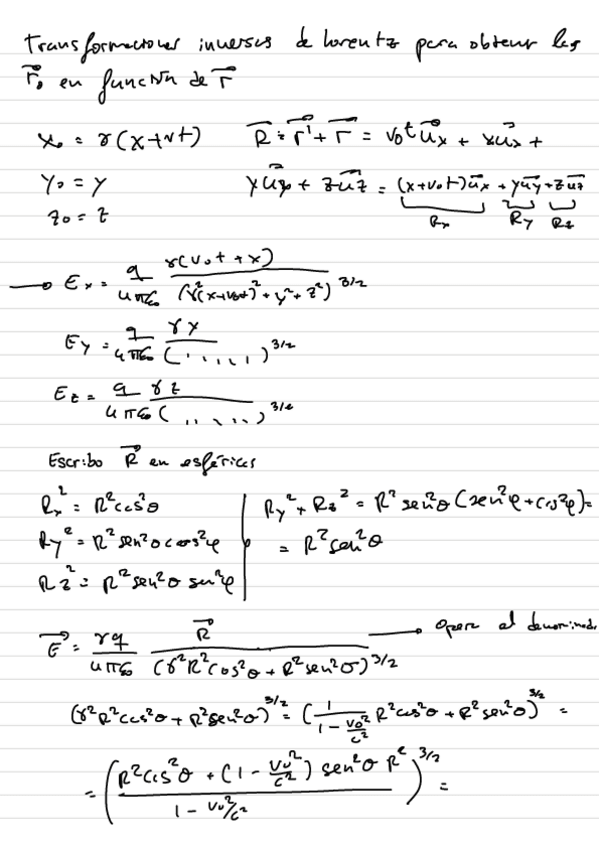 Transformaciones inversas de Lorentz para obtener las
r⃗₀ en función de r⃗
x₀ = γ(x+vt)    R⃗ = r⃗' + r⃗ = v₀t u⃗x + x u⃗x +
y₀ = y    y u⃗y + z u⃗z = (x+v₀t) u⃗x + y u⃗y + z u⃗z
z₀ = z    Rx Ry Rz
→ Ex = q/(4πε₀) · γ(v₀t + x)/(γ²(x+v₀t)² + y² + z²)^(3/2)
Ey = q/(4πε₀) · γy/(.....)^(3/2)
Ez = q/(4πε₀) · γz/(.....)^(3/2)
Escribo R⃗ en esféricas
Rx² = R²cos²θ    Ry² + Rz² = R² sen²θ (sen²φ + cos²φ) =
Ry² = R² sen²θ cos²φ    = R² sen²θ
Rz² = R² sen²θ sen²φ
E⃗ = γq/(4πε₀) · R⃗/(γ²R²cos²θ + R²sen²θ)^(3/2) → Opera el denominad.
(γ²R²cos²θ + R²sen²θ)^(3/2) = (1/(1 - v₀²/c²) R²cos²θ + R² sen²θ)^(3/2) =
= ((R²cos²θ + (1 - v₀²/c²) sen²θ R²)/(1 - v₀²/c²))^(3/2) =